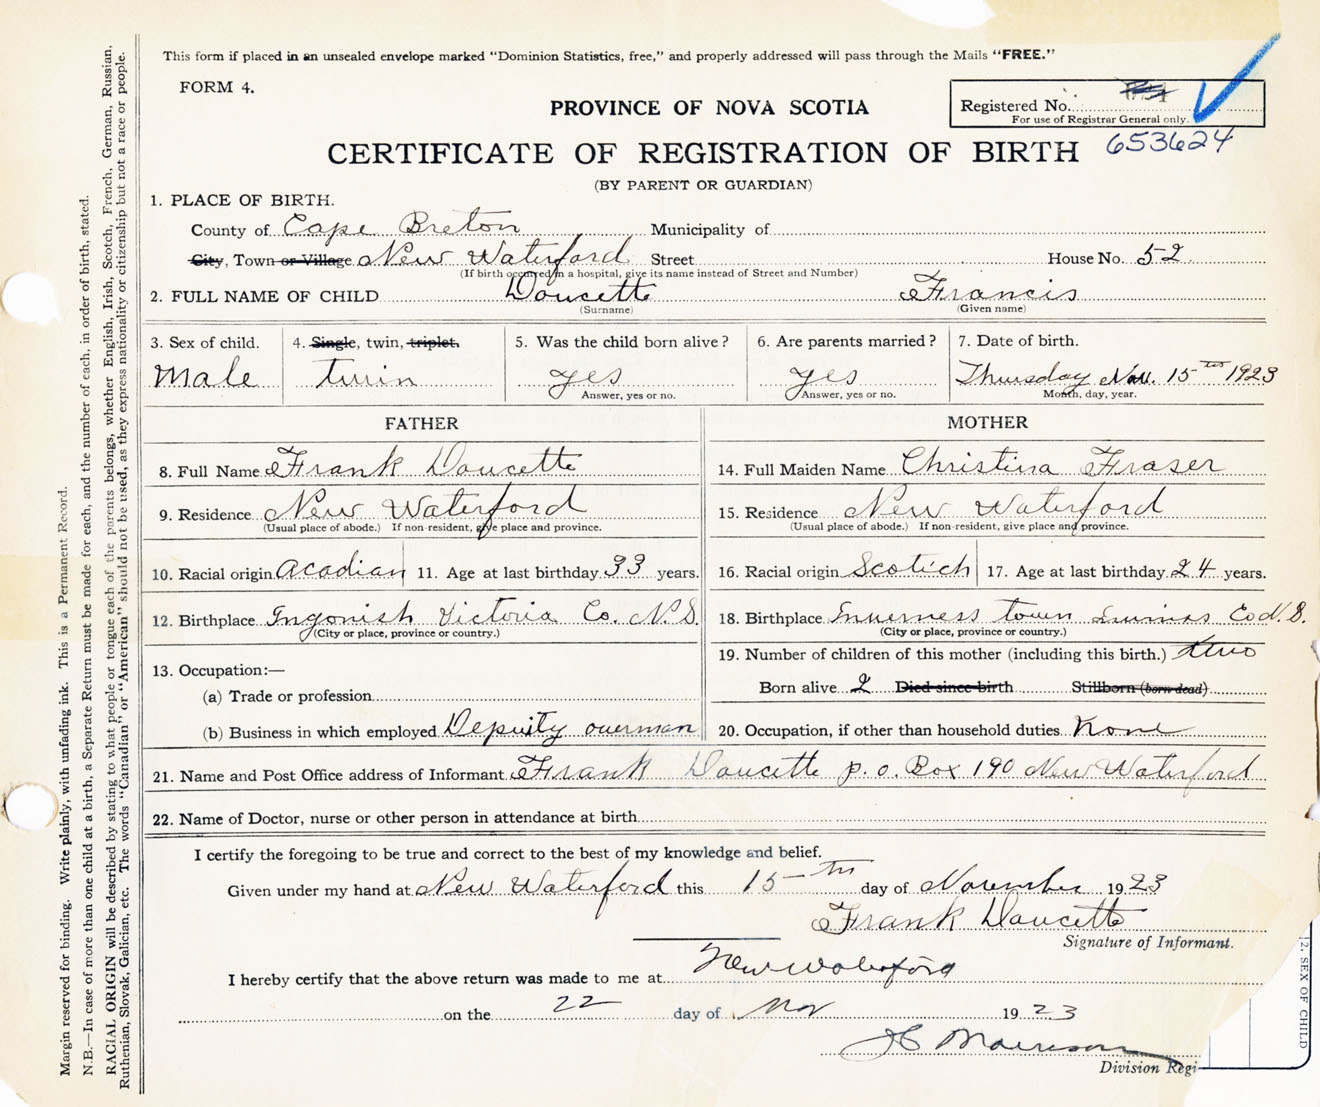 This form if placed in an unsealed envelope marked "Dominion Statistics, free," and properly addressed will pass through the Mails "FREE."
FORM 4.
PROVINCE OF NOVA SCOTIA
Registered No.
For use of Registrar General only.
CERTIFICATE OF REGISTRATION OF BIRTH 653624
(BY PARENT OR GUARDIAN)
1. PLACE OF BIRTH.
County of Cape Breton Municipality of
City, Town or Village New Waterford Street House No. 52
(If birth occurred in a hospital, give its name instead of Street and Number)
2. FULL NAME OF CHILD Doucette Francis
(Surname) (Given name)
3. Sex of child. 4. Single, twin, triplet. 5. Was the child born alive? 6. Are parents married? 7. Date of birth.
Male twin yes yes Thursday Nov. 15th 1923
Answer, yes or no. Answer, yes or no. Month, day, year.
FATHER MOTHER
8. Full Name Frank Doucette 14. Full Maiden Name Christina Fraser
9. Residence New Waterford 15. Residence New Waterford
(Usual place of abode.) If non-resident, give place and province. (Usual place of abode.) If non-resident, give place and province.
10. Racial origin Acadian 11. Age at last birthday 33 years. 16. Racial origin Scotich 17. Age at last birthday 24 years.
12. Birthplace Ingonish Victoria Co. N.S. 18. Birthplace Inverness town Co N.S.
(City or place, province or country.) (City or place, province or country.)
19. Number of children of this mother (including this birth.) two
13. Occupation:—
Born alive 2 Died since birth Stillborn (born dead)
(a) Trade or profession
(b) Business in which employed Deputy overman 20. Occupation, if other than household duties None
21. Name and Post Office address of Informant Frank Doucette p.o. Box 190 New Waterford
22. Name of Doctor, nurse or other person in attendance at birth
I certify the foregoing to be true and correct to the best of my knowledge and belief.
Given under my hand at New Waterford this 15th day of November 1923
Frank Doucette
Signature of Informant.
I hereby certify that the above return was made to me at New Waterford
on the 22 day of Nov 1923
J C Morrison
Division Regi
2. SEX OF CHILD
Margin reserved for binding. Write plainly, with unfading ink. This is a Permanent Record.
N.B.—In case of more than one child at a birth, a Separate Return must be made for each, and the number of each, in order of birth, stated.
RACIAL ORIGIN will be described by stating to what people or tongue each of the parents belongs, whether English, Irish, Scotch, French, German, Russian,
Ruthenian, Slovak, Galician, etc. The words "Canadian" or "American" should not be used, as they express nationality or citizenship but not a race or people.